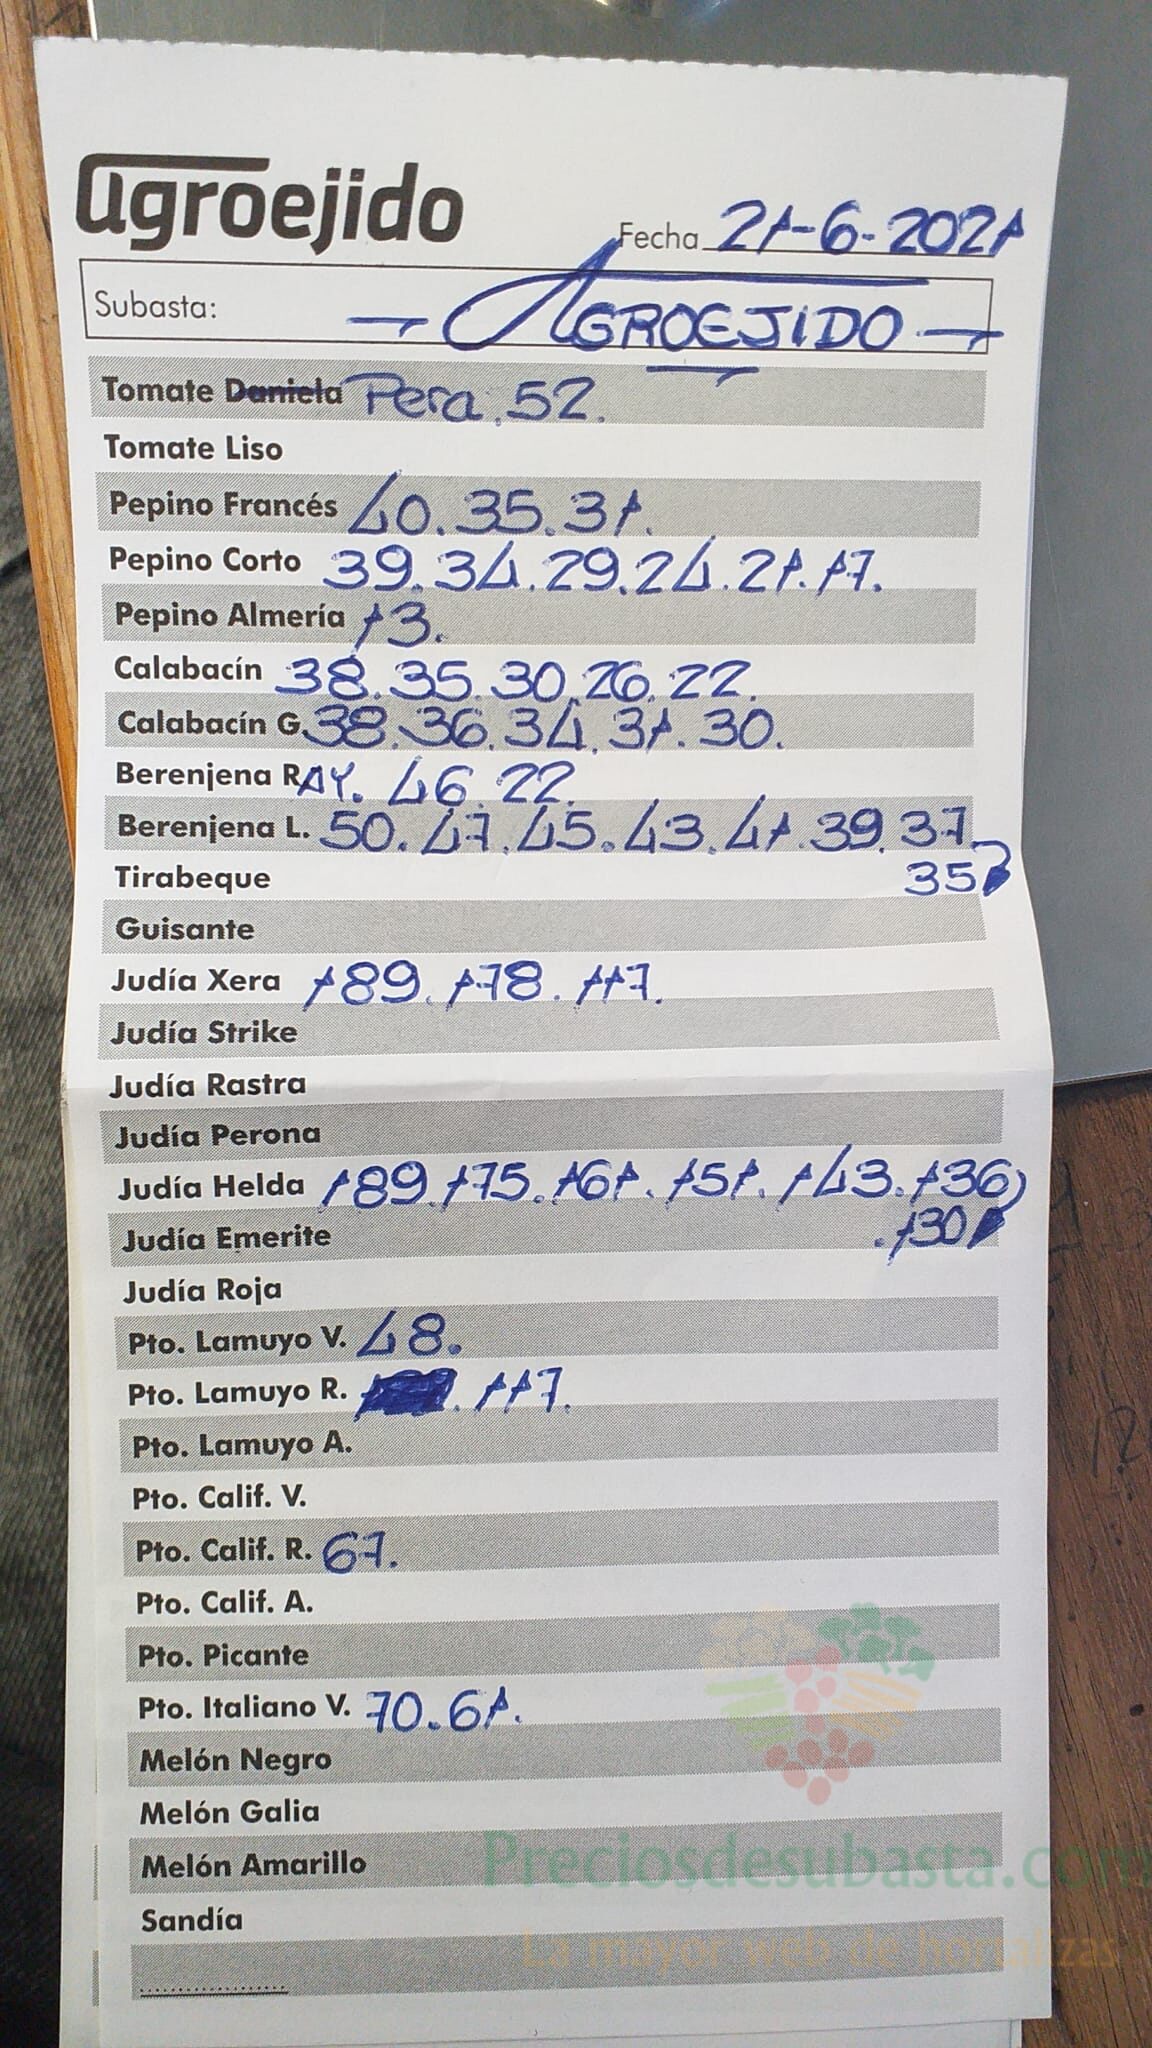 agroejido
Fecha 21-6-2021
Subasta: - AGROEJIDO -
Tomate Daniela Pera. 52.
Tomate Liso
Pepino Francés 40. 35. 31.
Pepino Corto 39. 34. 29. 24. 21. 17.
Pepino Almería 13.
Calabacín 38. 35. 30. 26. 22.
Calabacín G. 38. 36. 34. 31. 30.
Berenjena RAY. 46. 22.
Berenjena L. 50. 47. 45. 43. 41. 39. 37
Tirabeque 35
Guisante
Judía Xera 189. 178. 117.
Judía Strike
Judía Rastra
Judía Perona
Judía Helda 189. 175. 161. 151. 143. 136
Judía Emerite . 130
Judía Roja
Pto. Lamuyo V. 48.
Pto. Lamuyo R. . 117.
Pto. Lamuyo A.
Pto. Calif. V.
Pto. Calif. R. 67.
Pto. Calif. A.
Pto. Picante
Pto. Italiano V. 70. 61.
Melón Negro
Melón Galia
Melón Amarillo
Preciosdesubasta.com
Sandía
La mayor web de hortalizas